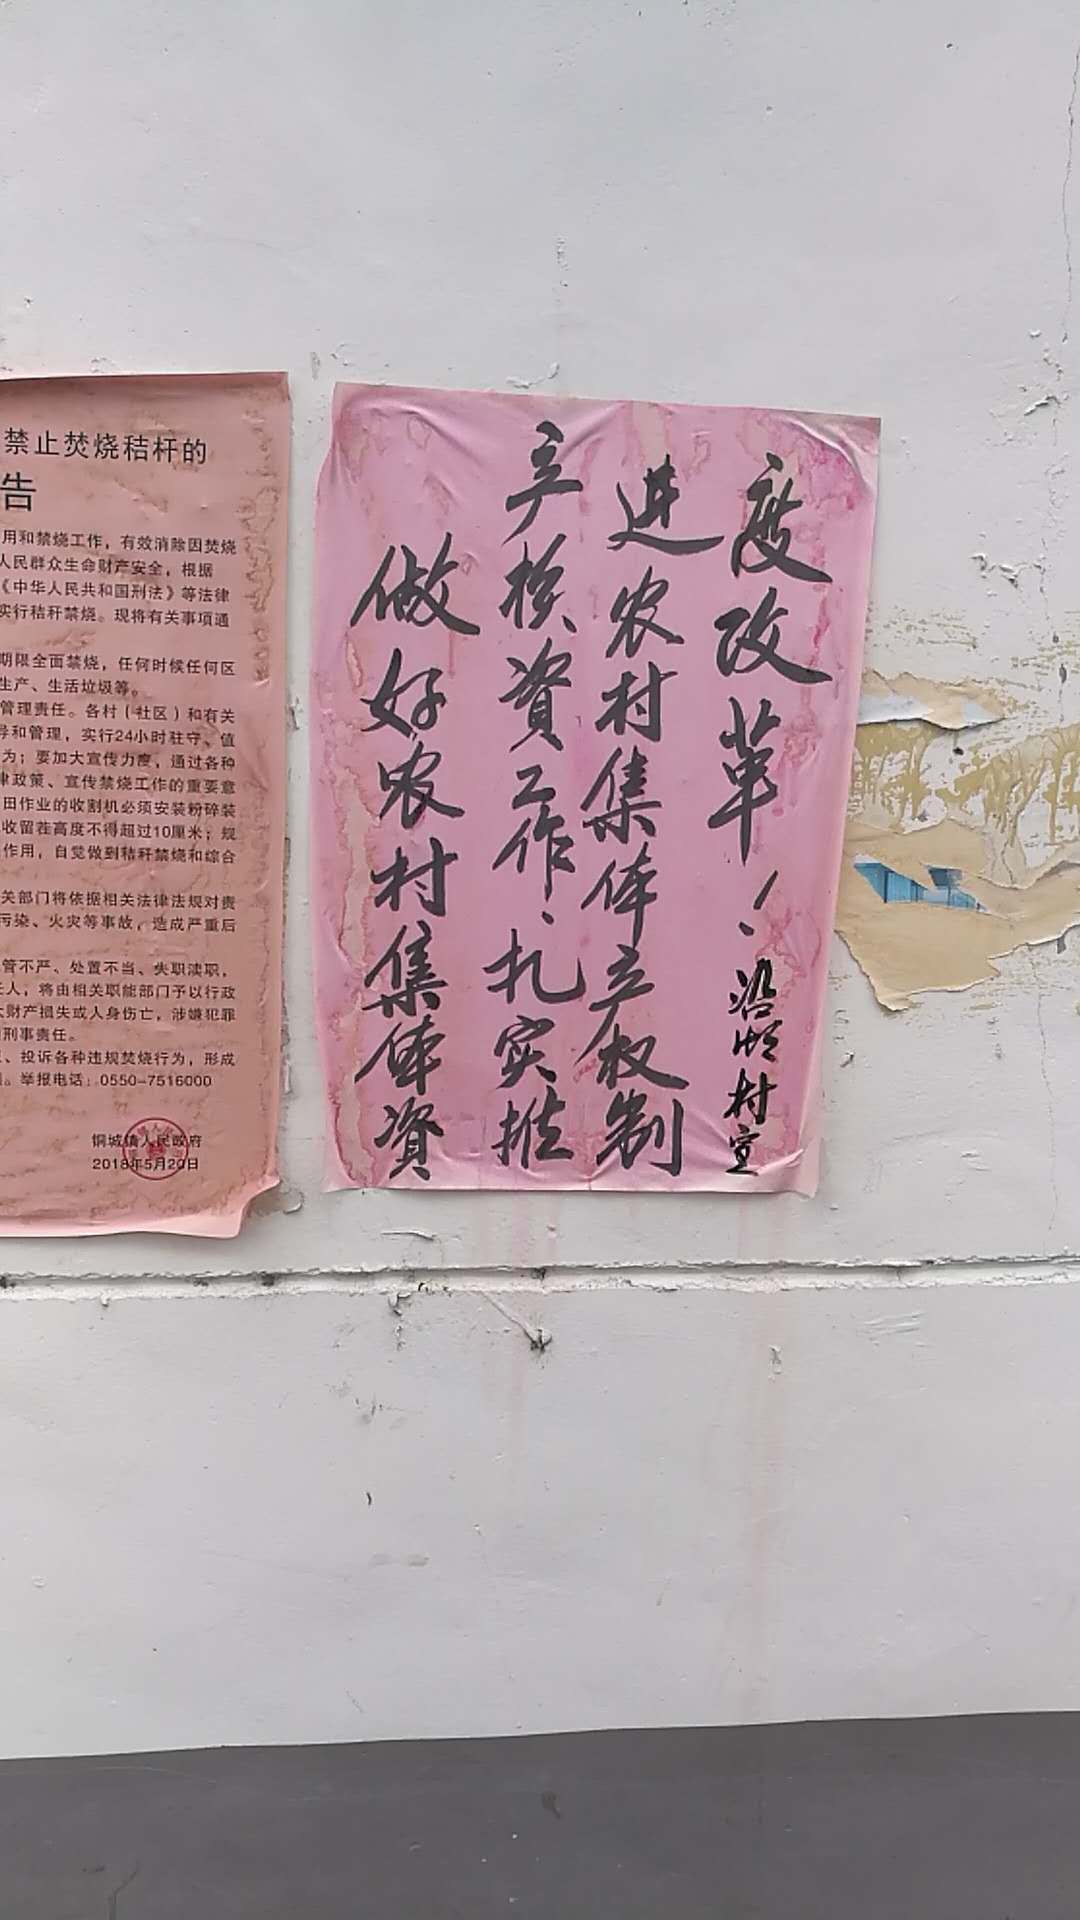 禁止焚烧秸秆的
告
用和禁烧工作，有效消除因焚烧
人民群众生命财产安全，根据
《中华人民共和国刑法》等法律
实行秸秆禁烧。现将有关事项通
期限全面禁烧，任何时候任何区
生产、生活垃圾等。
管理责任。各村（社区）和有关
导和管理，实行24小时驻守、值
为；要加大宣传力度，通过各种
律政策、宣传禁烧工作的重要意
田作业的收割机必须安装粉碎装
收留茬高度不得超过10厘米；规
作用，自觉做到秸秆禁烧和综合
关部门将依据相关法律法规对责
污染、火灾等事故，造成严重后
管不严、处置不当、失职渎职，
任人，将由相关职能部门予以行政
大财产损失或人身伤亡，涉嫌犯罪
刑事责任。
、投诉各种违规焚烧行为，形成
。举报电话：0550-7516000
铜城镇人民政府
2018年5月20日
做好农村集体資
产核資工作、扎实推
进农村集体产权制
度改革！沿湖村宣